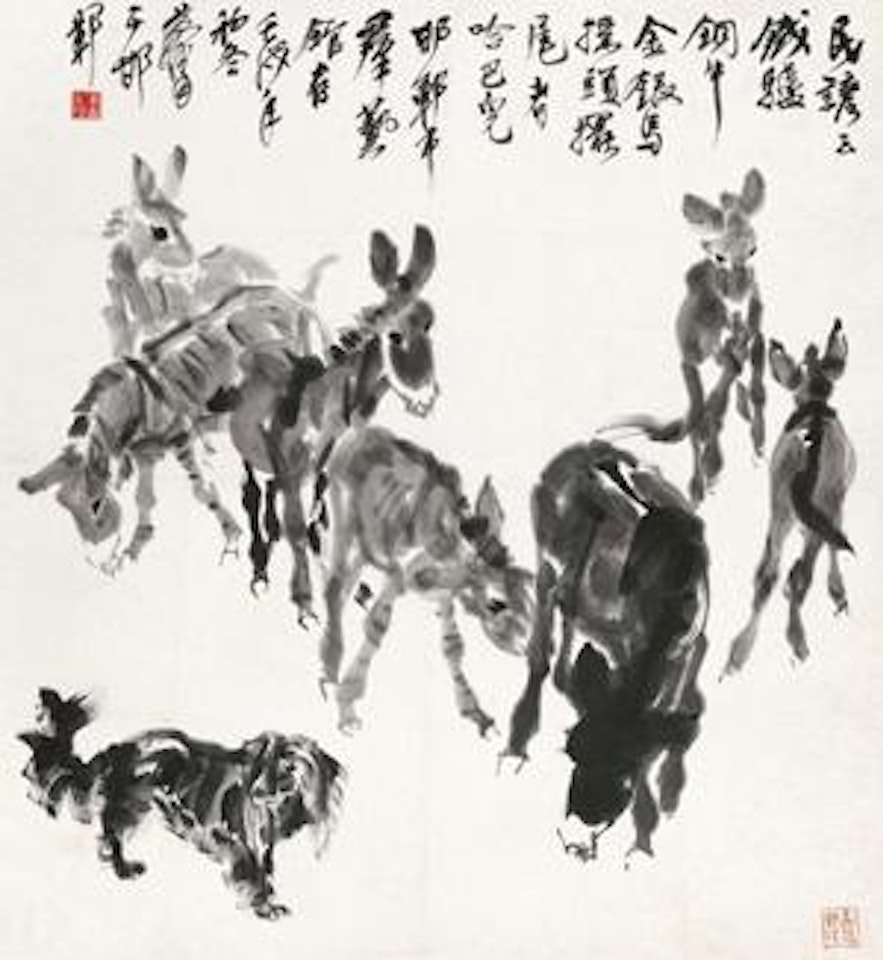 民諺云
鐵驢
銅牛
金銀馬
摇頭擺
尾者
哈巴兒
邯鄲市
羣藝
館存
壬戌年
初冬
黄胄
于邯
鄲